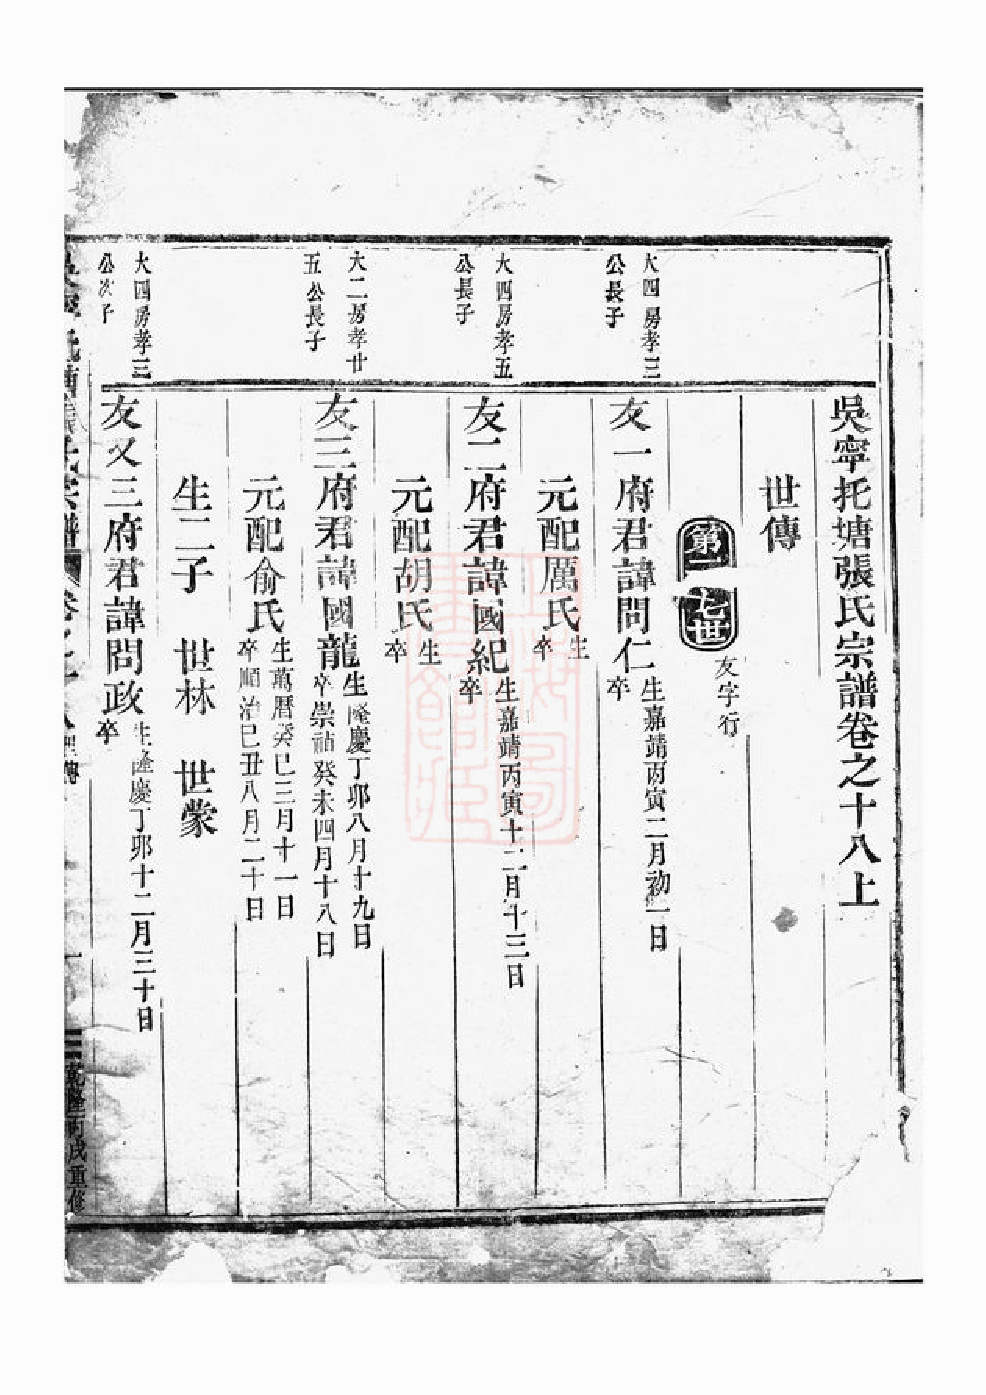 吳寧托塘張氏宗譜卷之十八上
世傳
第一七世
友字行
大四房孝三
公長子
友一府君諱問仁
生嘉靖丙寅二月初一日
卒
元配厲氏
生
卒
大四房孝五
公長子
友二府君諱國紀
生嘉靖丙寅十二月十三日
卒
元配胡氏
生
卒
大二房孝廿
五公長子
友三府君諱國龍
生隆慶丁卯八月十九日
卒崇禎癸未四月十八日
元配俞氏
生萬曆癸巳三月十一日
卒順治己丑八月二十日
生二子 世林 世蒙
大四房孝三
公次子
友又三府君諱問政
生隆慶丁卯十二月三十日
卒
乾隆丙戌重修